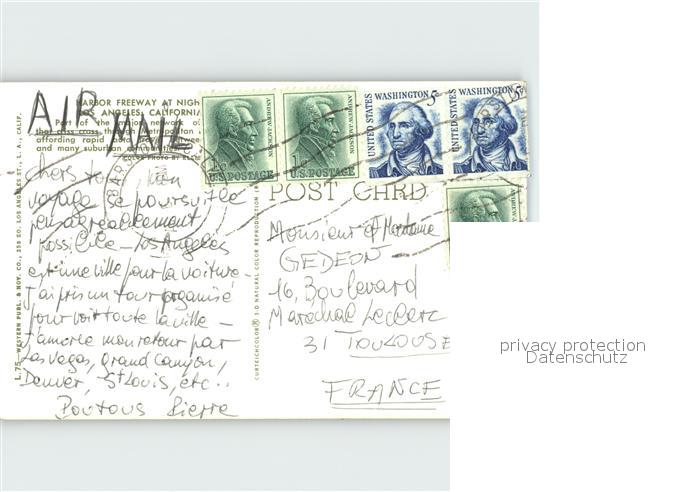 HARBOR FREEWAY AT NIGH
LOS ANGELES, CALIFORNIA
Part of the major network o
that criss cross through Metropolitan
affording rapid between
and many suburban communities.
COLOR PHOTO BY
AIR
MAIL
U.S. POSTAGE
1c
ANDREW JACKSON
U.S. POSTAGE
1c
ANDREW JACKSON
UNITED STATES
WASHINGTON 5c
UNITED STATES
WASHINGTON 5c
ANDREW
POST CARD
Chers tous, mon
voyage se poursuit le
plus agréablement
possible - Los Angeles
est une ville pour la voiture -
J'ai pris un tour organisé
pour voir toute la ville -
J'amorce mon retour par
Las Vegas, Grand Canyon,
Denver, St Louis, etc..
Poutous Pierre
Monsieur et Madame
GEDEON
16, Boulevard
Marechal Leclerc
31 TOULOUSE
FRANCE
L.75 - WESTERN PUBL. & NOV. CO., 258 SO. LOS ANGELES ST., L. A., CALIF.
CURTEICHCOLOR ® 3-D NATURAL COLOR REPRODUCTION
privacy protection
Datenschutz